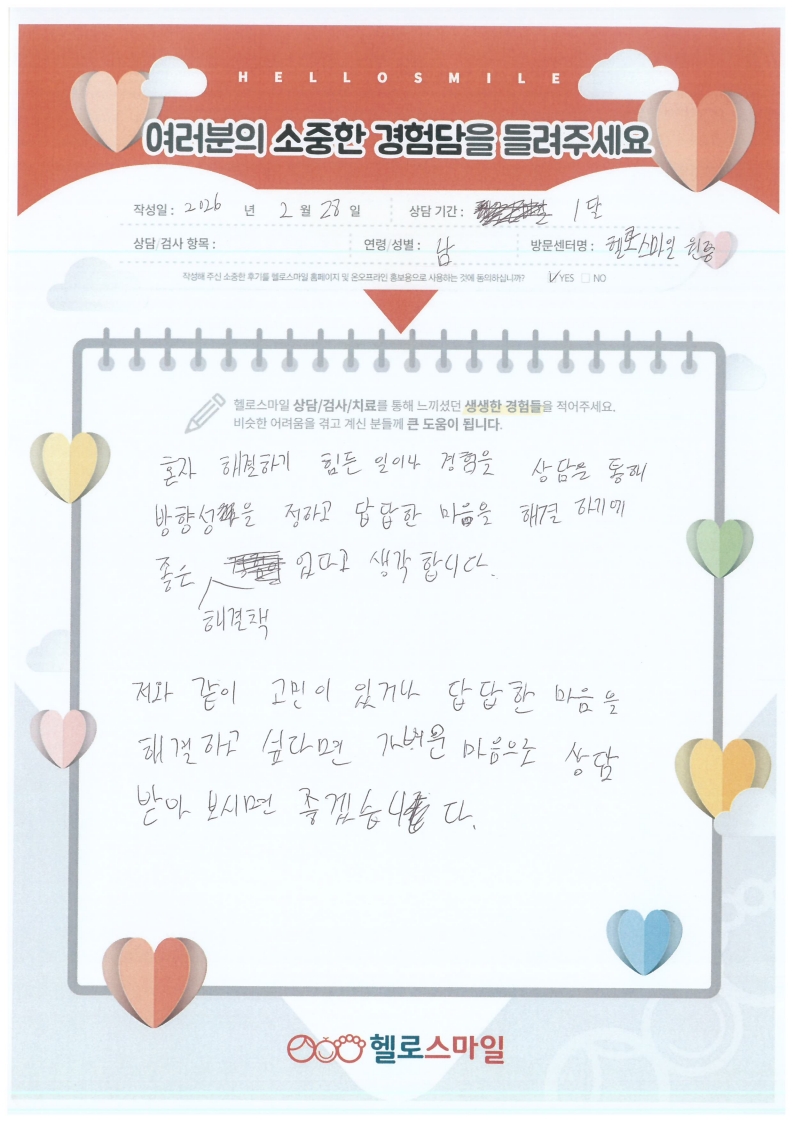 HELLOSMILE
여러분의 소중한 경험담을 들려주세요
작성일 : 2026 년 2 월 28 일 상담 기간 : 1달
상담/검사 항목 : 연령/성별 : 남 방문센터명 : 헬로스마일 원종
작성해 주신 소중한 후기를 헬로스마일 홈페이지 및 온오프라인 홍보용으로 사용하는 것에 동의하십니까? YES NO
헬로스마일 상담/검사/치료를 통해 느끼셨던 생생한 경험들을 적어주세요.
비슷한 어려움을 겪고 계신 분들께 큰 도움이 됩니다.
혼자 해결하기 힘든 일이나 경험을 상담을 통해
방향성을 정하고 답답한 마음을 해결 하기에
좋은 해결책 없다고 생각합니다.
저와 같이 고민이 있거나 답답한 마음을
해결하고 싶다면 가벼운 마음으로 상담
받아 보시면 좋겠습니다.
헬로스마일